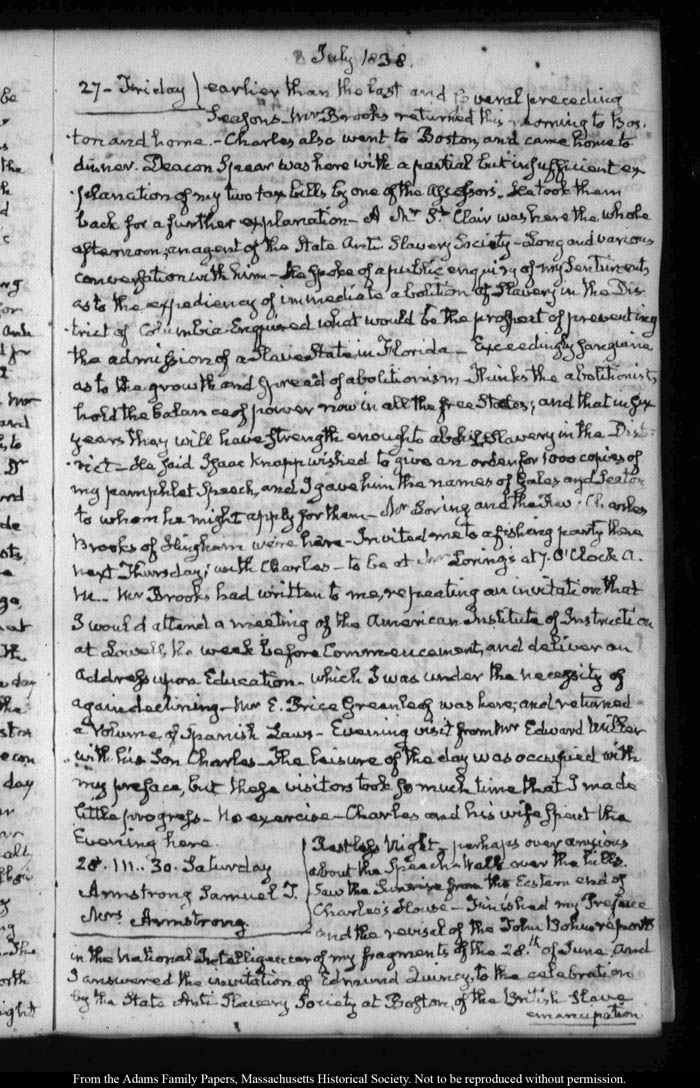 July 1838.
27 - Friday } earlier than the last and several preceding
Seasons - Mr Brooks returned this morning to Bos-
ton and home. - Charles also went to Boston, and came home to
dinner. Deacon Spear was here with a partial but insufficient ex
planation of my two tax bills by one of the Assessors. He took them
back for a further explanation - A Mr St. Clair was here the whole
afternoon; an agent of the State Anti Slavery Society - Long and various
conversation with him - He spoke of a public enquiry of my sentiments
as to the expediency of immediate abolition of Slavery in the Dis
trict of Columbia. Enquired what would be the prospect of preventing
the admission of a Slave State in Florida - Exceedingly sanguine
as to the growth and spread of abolitionism - Thinks the abolitionists
hold the balance of power now in all the free States; and that in six
years they will have strength enough to abolish Slavery in the Dist-
rict - He said Isaac Knapp wished to give an order for 1000 copies of
my pamphlet Speech, and I gave him the names of Gales and Seaton
to whom he might apply for them - Mr Loring and the Rev. Charles
Brooks of Hingham were here - Invited me to a fishing party there
next Thursday; with Charles - to be at Mr Loring's at 7. O'Clock A.
M. - Mr Brooks had written to me, repeating an invitation that
I would attend a meeting of the American Institute of Instruction
at Lowell, the week before Commencement, and deliver an
Address upon Education - which I was under the necessity of
again declining - Mr E. Price Greenleaf was here; and returned
a Volume of Spanish Laws - Evening visit from Mr Edward Miller
with his Son Charles - The leisure of the day was occupied with
my preface, but these visitors took so much time that I made
little progress - No exercise - Charles and his wife spent the
Evening here.
28. III.. 30. Saturday
Armstrong Samuel T.
Mrs Armstrong
Restless Night - perhaps over anxious
about the Speech - Walk over the hills.
Saw the Sunrise from the Eastern end of
Charles's House - Finished my Preface
and the revisal of the John Bohn reports
in the National Intelligencer of my fragments of the 28.th of June, and
I answered the invitation of Edmund Quincy, to the celebration
by the State Anti Slavery Society at Boston, of the British Slave
emancipation
From the Adams Family Papers, Massachusetts Historical Society. Not to be reproduced without permission.